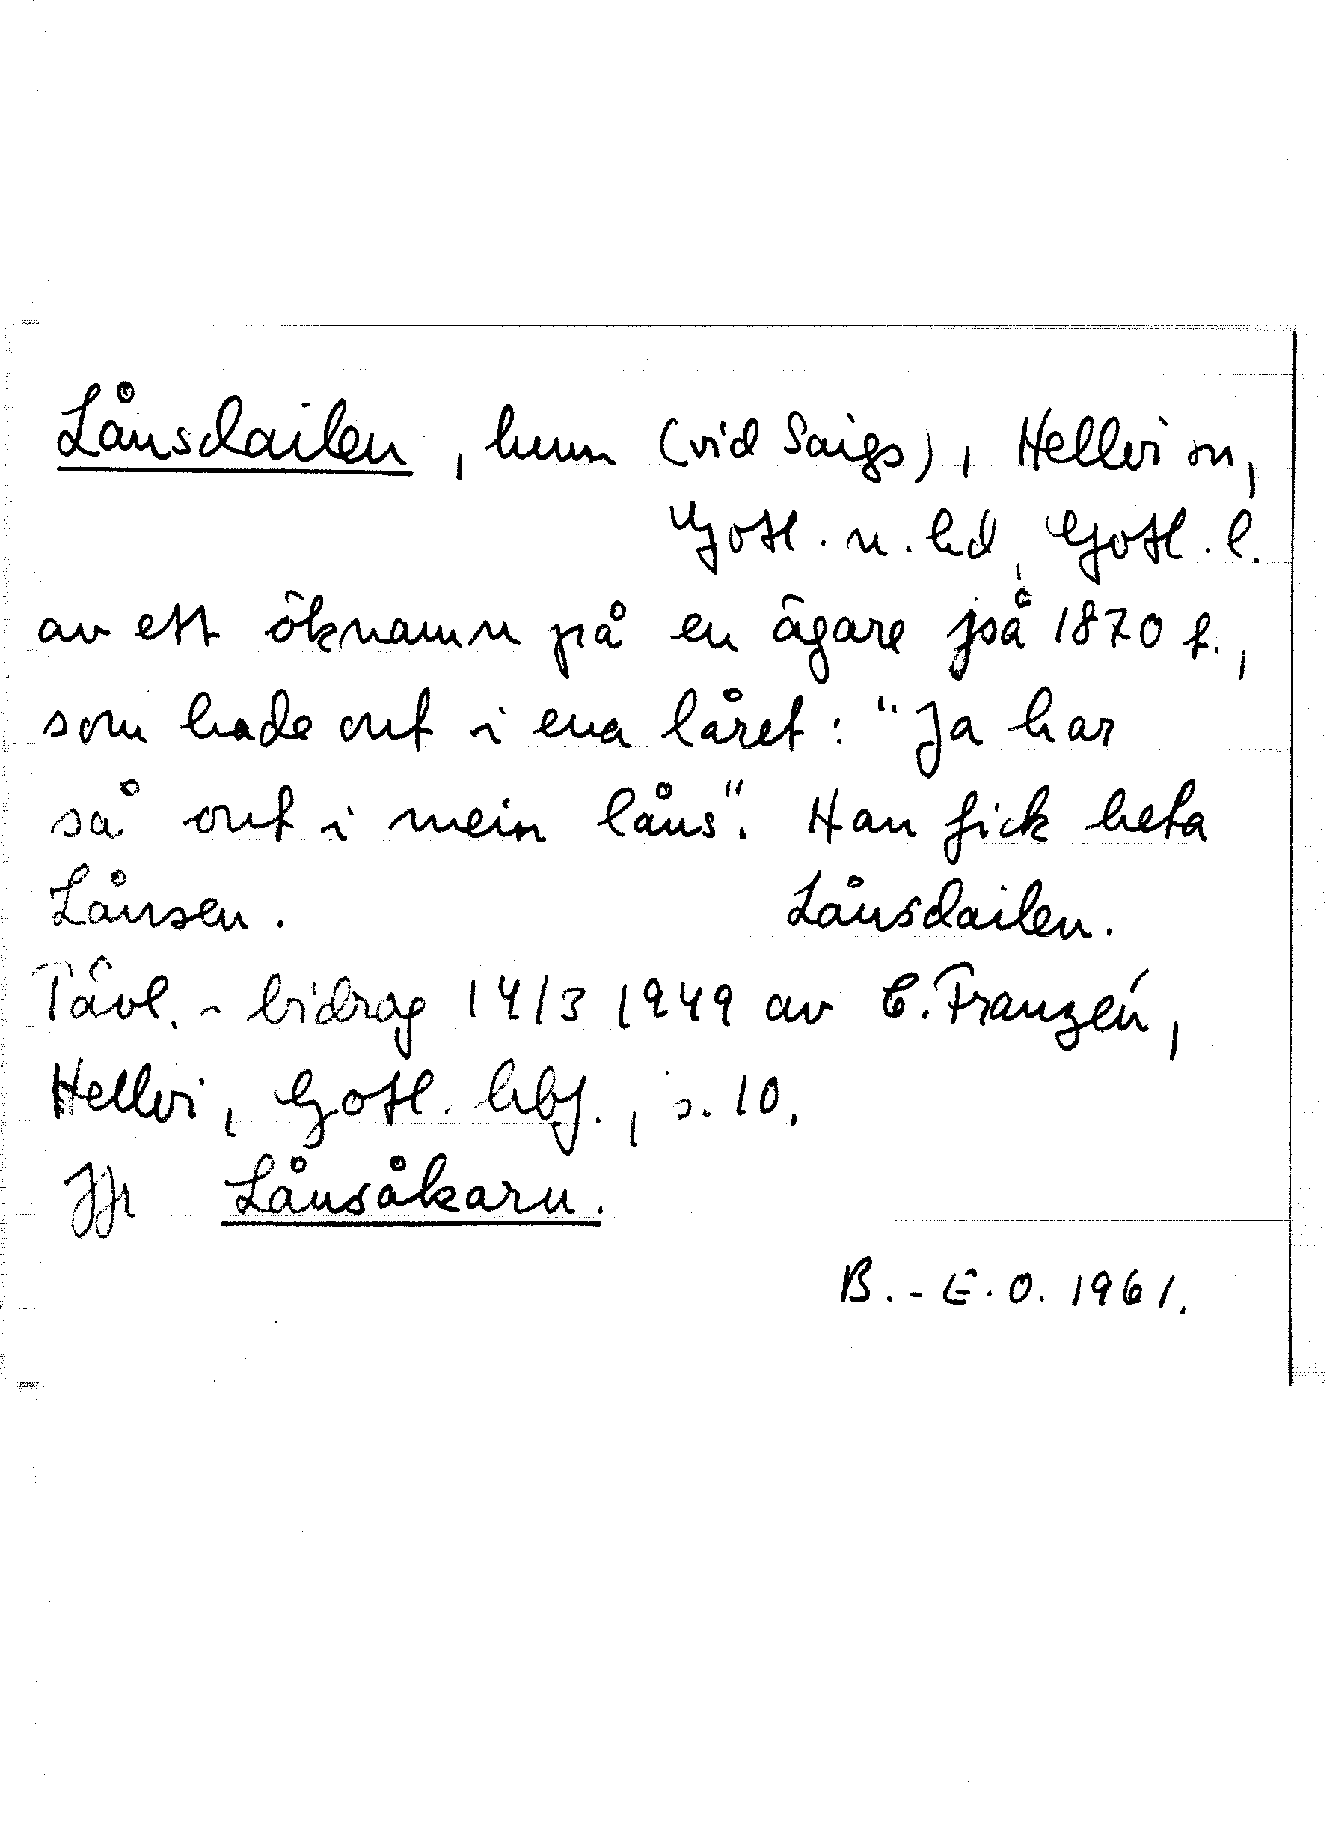 Lånsdailen, hemm (vid Saigs), Hellvi sn,
Gotl. n. hd, Gotl. l.
av ett öknamn på en ägare på 1870 t.,
som hade ont i ena låret: "Ja har
så ont i mein låns". Han fick heta
Lånsen. Lånsdailen.
Tävl.-bidrag 14/3 1949 av C. Franzén,
Hellvi, Gotl. hbf., s. 10.
Jfr Lånsåkarn.
B.-E.O. 1961.